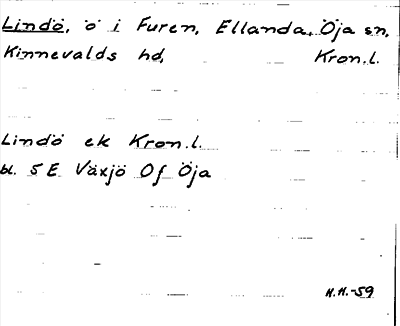 Lindö, ö i Furen, Ellanda, Öja sn,
Kinnevalds hd, Kron.l.
Lindö ek Kron.l.
bl. 5 E Växjö Of Öja
H.H.-59